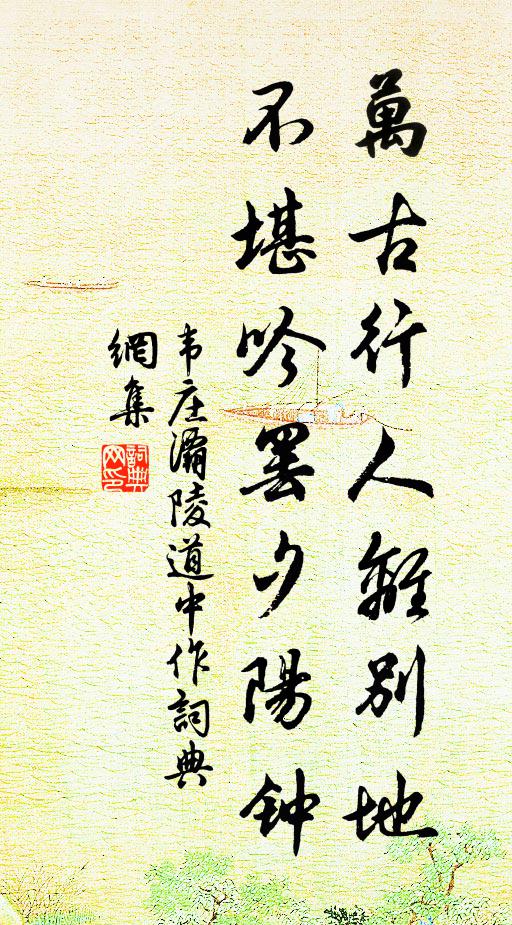 萬古行人離別地
不堪吟罢夕陽钟
韦庄灞陵道中作詞典
網集
詞典网印